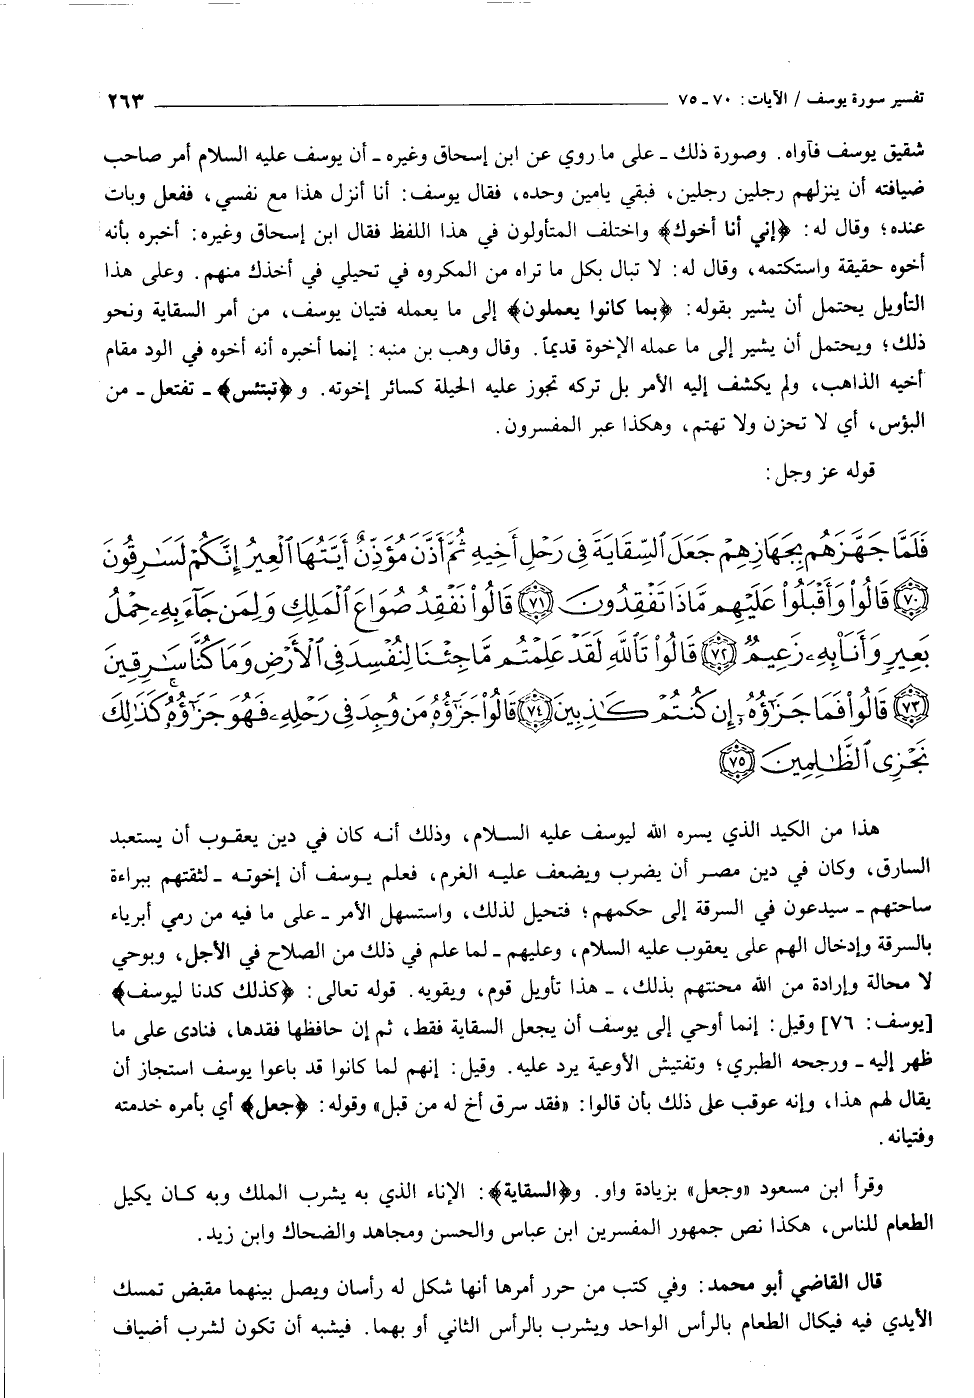 تفسير سورة يوسف / الآيات: ٧٠ ـ ٧٥ ٢٦٣
شقيق يوسف فآواه. وصورة ذلك ـ على ما روي عن ابن إسحاق وغيره ـ أن يوسف عليه السلام أمر صاحب
ضيافته أن ينزلهم رجلين رجلين، فبقي يامين وحده، فقال يوسف: أنا أنزل هذا مع نفسي، ففعل وبات
عنده؛ وقال له: ﴿إني أنا أخوك﴾ واختلف المتأولون في هذا اللفظ فقال ابن إسحاق وغيره: أخبره بأنه
أخوه حقيقة واستكتمه، وقال له: لا تبال بكل ما تراه من المكروه في تحيلي في أخذك منهم. وعلى هذا
التأويل يحتمل أن يشير بقوله: ﴿بما كانوا يعملون﴾ إلى ما يعمله فتيان يوسف، من أمر السقاية ونحو
ذلك؛ ويحتمل أن يشير إلى ما عمله الإخوة قديماً. وقال وهب بن منبه: إنما أخبره أنه أخوه في الود مقام
أخيه الذاهب، ولم يكشف إليه الأمر بل تركه تجوز عليه الحيلة كسائر إخوته. و ﴿تبتئس﴾ ـ تفتعل ـ من
البؤس، أي لا تحزن ولا تهتم، وهكذا عبر المفسرون.
قوله عز وجل:
فَلَمَّا جَهَّزَهُم بِجَهَازِهِمْ جَعَلَ ٱلسِّقَايَةَ فِى رَحْلِ أَخِيهِ ثُمَّ أَذَّنَ مُؤَذِّنٌ أَيَّتُهَا ٱلْعِيرُ إِنَّكُمْ لَسَٰرِقُونَ
﴿٧٠﴾ قَالُوا۟ وَأَقْبَلُوا۟ عَلَيْهِم مَّاذَا تَفْقِدُونَ ﴿٧١﴾ قَالُوا۟ نَفْقِدُ صُوَاعَ ٱلْمَلِكِ وَلِمَن جَآءَ بِهِۦ حِمْلُ
بَعِيرٍ وَأَنَا۠ بِهِۦ زَعِيمٌ ﴿٧٢﴾ قَالُوا۟ تَٱللَّهِ لَقَدْ عَلِمْتُم مَّا جِئْنَا لِنُفْسِدَ فِى ٱلْأَرْضِ وَمَا كُنَّا سَٰرِقِينَ
﴿٧٣﴾ قَالُوا۟ فَمَا جَزَٰٓؤُهُۥٓ إِن كُنتُمْ كَٰذِبِينَ ﴿٧٤﴾ قَالُوا۟ جَزَٰٓؤُهُۥ مَن وُجِدَ فِى رَحْلِهِۦ فَهُوَ جَزَٰٓؤُهُۥ ۚ كَذَٰلِكَ
نَجْزِى ٱلظَّٰلِمِينَ ﴿٧٥﴾
هذا من الكيد الذي يسره الله ليوسف عليه السلام، وذلك أنه كان في دين يعقوب أن يستعبد
السارق، وكان في دين مصر أن يضرب ويضعف عليه الغرم، فعلم يوسف أن إخوته ـ لثقتهم ببراءة
ساحتهم ـ سيدعون في السرقة إلى حكمهم؛ فتحيل لذلك، واستسهل الأمر ـ على ما فيه من رمي أبرياء
بالسرقة وإدخال الهم على يعقوب عليه السلام، وعليهم ـ لما علم في ذلك من الصلاح في الأجل، وبوحي
لا محالة وإرادة من الله محنتهم بذلك، ـ هذا تأويل قوم، ويقويه. قوله تعالى: ﴿كذلك كدنا ليوسف﴾
[يوسف: ٧٦] وقيل: إنما أوحي إلى يوسف أن يجعل السقاية فقط، ثم إن حافظها فقدها، فنادى على ما
ظهر إليه ـ ورجحه الطبري؛ وتفتيش الأوعية يرد عليه. وقيل: إنهم لما كانوا قد باعوا يوسف استجاز أن
يقال لهم هذا، وإنه عوقب على ذلك بأن قالوا: «فقد سرق أخ له من قبل» وقوله: ﴿جعل﴾ أي بأمره خدمته
وفتيانه.
وقرأ ابن مسعود «وجعل» بزيادة واو. و﴿السقاية﴾: الإناء الذي به يشرب الملك وبه كان يكيل
الطعام للناس، هكذا نص جمهور المفسرين ابن عباس والحسن ومجاهد والضحاك وابن زيد.
قال القاضي أبو محمد: وفي كتب من حرر أمرها أنها شكل له رأسان ويصل بينهما مقبض تمسك
الأيدي فيه فيكال الطعام بالرأس الواحد ويشرب بالرأس الثاني أو بهما. فيشبه أن تكون لشرب أضياف